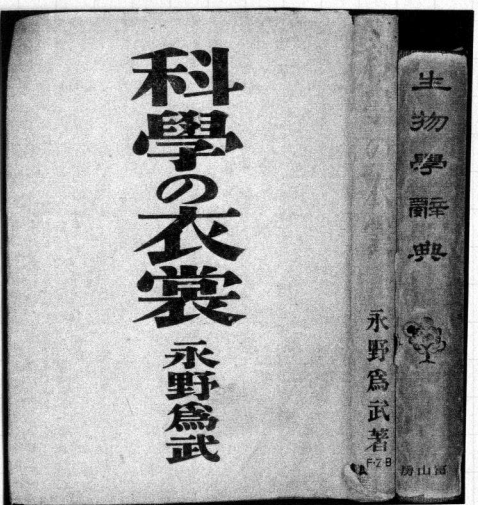 科學の衣裳
永野爲武
永野爲武著
F・Z・B
生物學辭典
冨山房